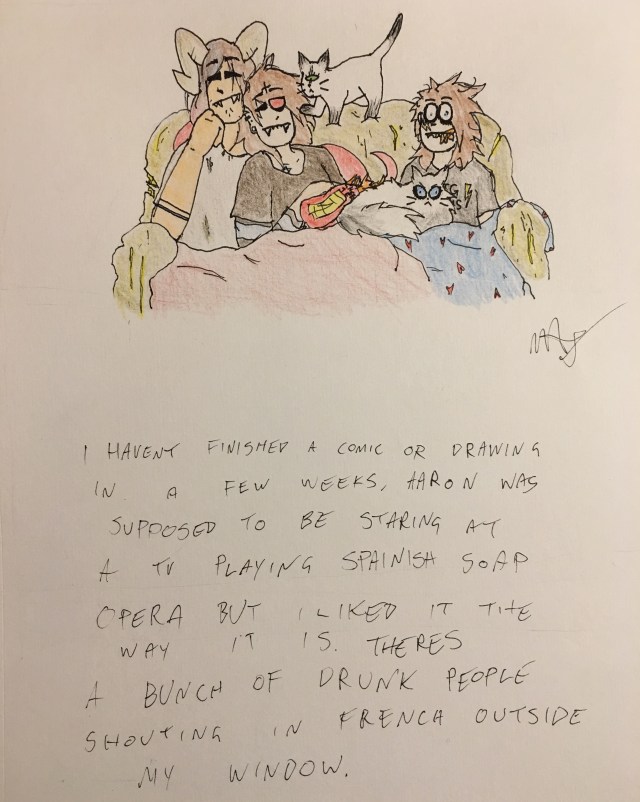 I HAVENT FINISHED A COMIC OR DRAWING
IN A FEW WEEKS, AARON WAS
SUPPOSED TO BE STARING AT
A TV PLAYING SPAINISH SOAP
OPERA BUT I LIKED IT THE
WAY IT IS. THERES
A BUNCH OF DRUNK PEOPLE
SHOUTING IN FRENCH OUTSIDE
MY WINDOW.